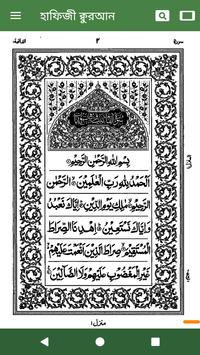 হাফিজী কুরআন
سورة
٢
الفاتحة
بِسْمِ اللهِ الرَّحْمٰنِ الرَّحِيْمِ
اَلْحَمْدُ لِلّٰهِ رَبِّ الْعٰلَمِيْنَ ۙ الرَّحْمٰنِ
الرَّحِيْمِ ۙ مٰلِكِ يَوْمِ الدِّيْنِ ؕ اِيَّاكَ نَعْبُدُ
وَاِيَّاكَ نَسْتَعِيْنُ ؕ اِهْدِنَا الصِّرَاطَ
الْمُسْتَقِيْمَ ۙ صِرَاطَ الَّذِيْنَ اَنْعَمْتَ عَلَيْهِمْ ۙ
غَيْرِ الْمَغْضُوْبِ عَلَيْهِمْ وَلَا الضَّآلِّيْنَ
منزل ١